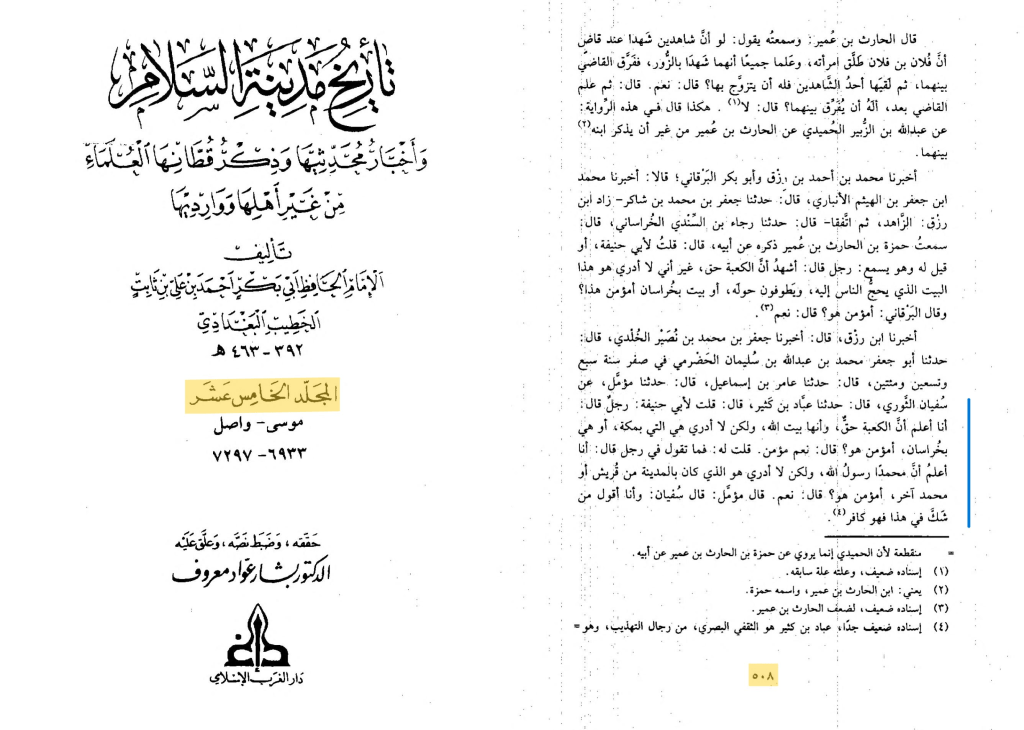 تأريخ مدينة السلام
وأخبار محدثيها وذكر قطانها العلماء
من غير أهلها ووارديها
تأليف
الإمام الحافظ أبي بكر أحمد بن علي بن ثابت
الخطيب البغدادي
٣٩٢ - ٤٦٣ هـ
المجلد الخامس عشر
موسى - واصل
٦٩٣٣ - ٧٢٩٧
حققه، وضبط نصه، وعلق عليه
الدكتور بشار عواد معروف
دار الغرب الإسلامي
قال الحارث بن عُمير: وسمعتُه يقول: لو أنَّ شاهدين شَهدا عند قاضٍ
أنَّ فُلان بن فلان طَلَّق امرأته، وعَلما جميعًا أنهما شَهدَا بالزُّور، ففرَّق القاضي
بينهما، ثم لقيَها أحدُ الشَّاهدين فله أن يتزوَّج بها؟ قال: نعم. قال: ثم علم
القاضي بعد، ألَهُ أن يُفَرِّق بينهما؟ قال: لا(١). هكذا قال في هذه الرِّواية:
عن عبدالله بن الزُّبير الحُميدي عن الحارث بن عُمير من غير أن يذكر ابنه(٢)
بينهما.
أخبرنا محمد بن أحمد بن رزْق وأبو بكر البَرْقاني؛ قالا: أخبرنا محمد
ابن جعفر بن الهيثم الأنباري، قال: حدثنا جعفر بن محمد بن شاكر- زاد ابن
رزْق: الزَّاهد، ثم اتَّفقا- قال: حدثنا رجاء بن السِّنْدي الخُراساني، قال:
سمعتُ حمزة بن الحارث بن عُمير ذكره عن أبيه، قال: قلتُ لأبي حنيفة، أو
قيل له وهو يسمع: رجل قال: أشهدُ أنَّ الكعبة حق، غير أني لا أدري هو هذا
البيت الذي يحجُّ الناس إليه، ويَطوفون حولَه، أو بيت بخُراسان أمؤمن هذا؟
وقال البَرْقاني: أمؤمن هو؟ قال: نعم(٣).
أخبرنا ابن رزْق، قال: أخبرنا جعفر بن محمد بن نُصَيْر الخُلْدي، قال:
حدثنا أبو جعفر محمد بن عبدالله بن سُليمان الحَضْرمي في صفر سنة سبع
وتسعين ومئتين، قال: حدثنا عامر بن إسماعيل، قال: حدثنا مؤمَّل، عن
سُفيان الثَّوري، قال: حدثنا عبَّاد بن كَثير، قال: قلت لأبي حنيفة: رجلٌ قال:
أنا أعلم أنَّ الكعبة حقٌّ، وأنها بيت الله، ولكن لا أدري هي التي بمكة، أو هي
بخُراسان، أمؤمن هو؟ قال: نعم مؤمن. قلت له: فما تقول في رجل قال: أنا
أعلمُ أنَّ محمدًا رسولُ الله، ولكن لا أدري هو الذي كان بالمدينة من قُريش أو
محمد آخر، أمؤمن هو؟ قال: نعم. قال مؤمَّل: قال سُفيان: وأنا أقول من
شَكَّ في هذا فهو كافر(٤).
= منقطعة لأن الحميدي إنما يروي عن حمزة بن الحارث بن عمير عن أبيه.
(١) إسناده ضعيف، وعلته علة سابقه.
(٢) يعني: ابن الحارث بن عمير، واسمه حمزة.
(٣) إسناده ضعيف، لضعف الحارث بن عمير.
(٤) إسناده ضعيف جدًا، عباد بن كثير هو الثقفي البصري، من رجال التهذيب، وهو=
٥٠٨